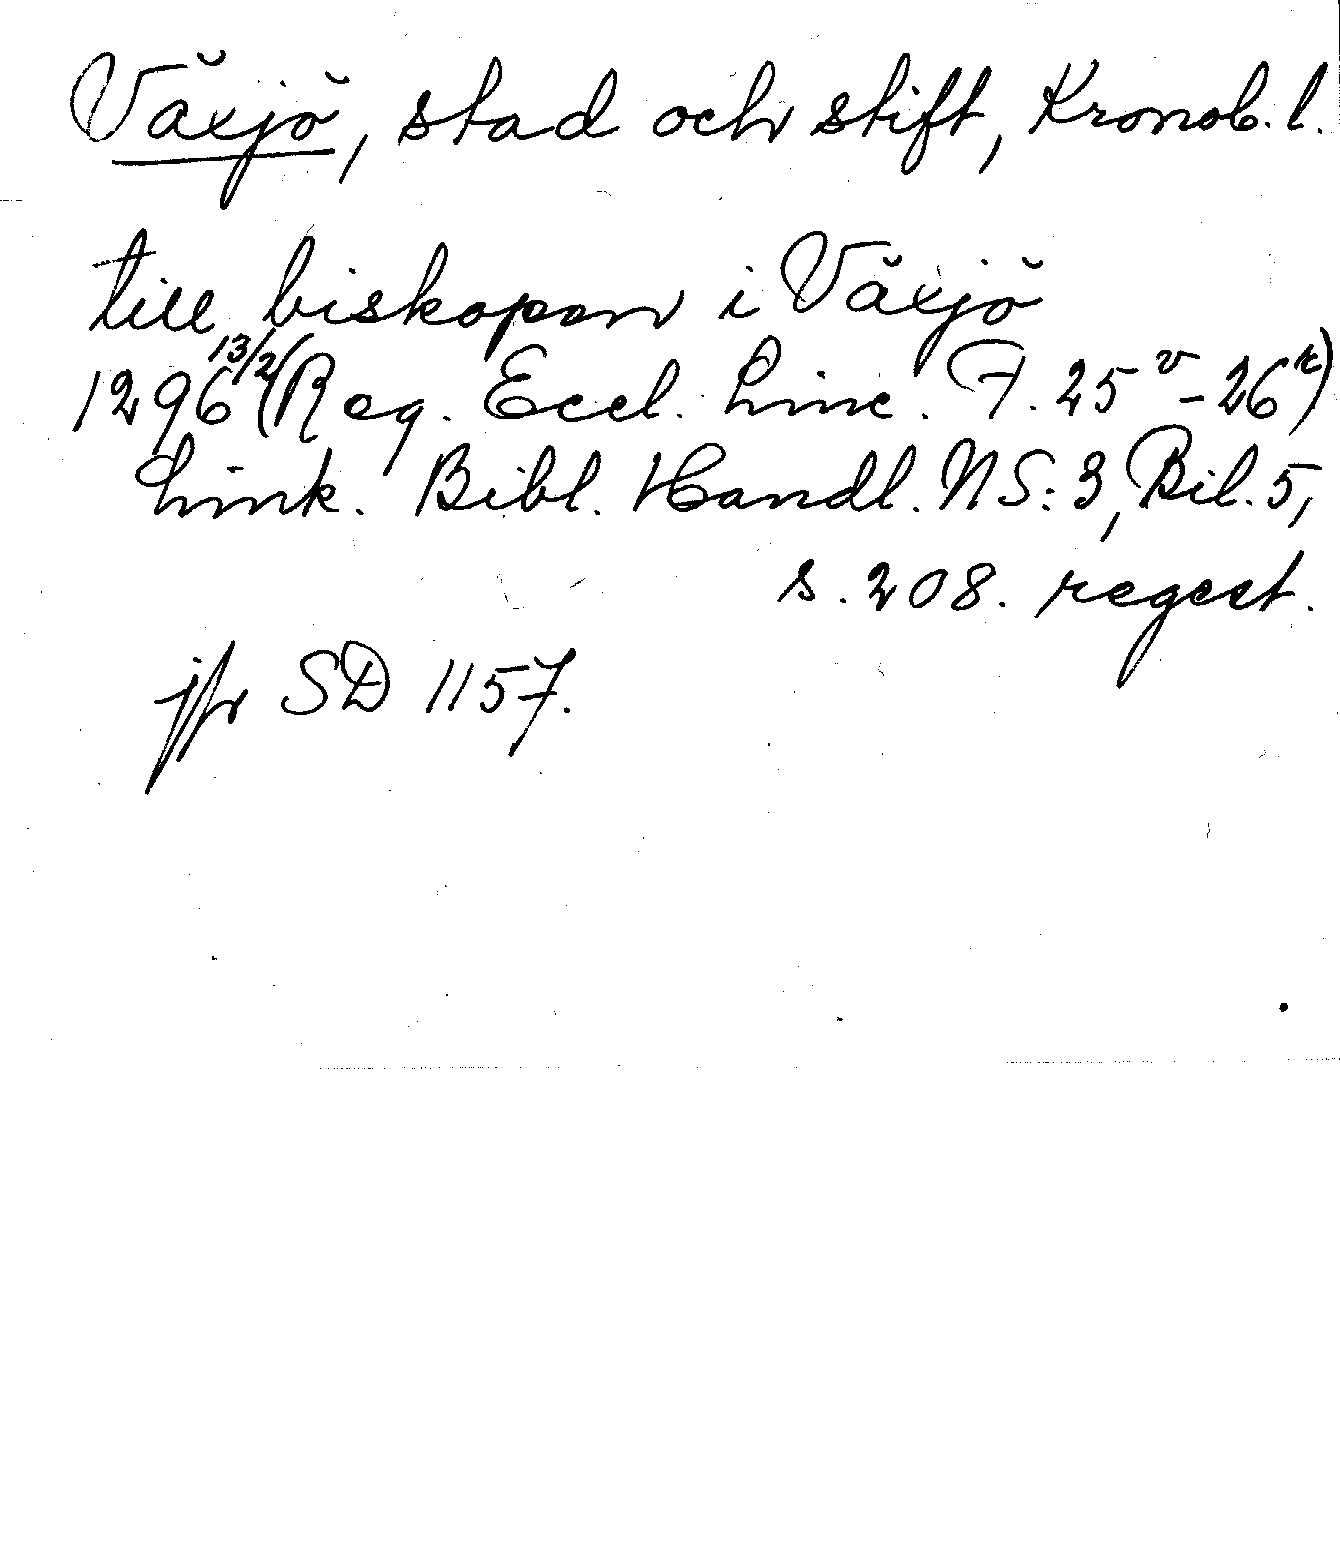 Växjö, stad och stift, Kronob. l.
till biskopen i Växjö
1296 13/2 (Reg. Eccl. Linc. F. 25v-26r)
Link. Bibl. Handl. NS: 3, Bil. 5,
s. 208. regest.
jfr SD 1157.